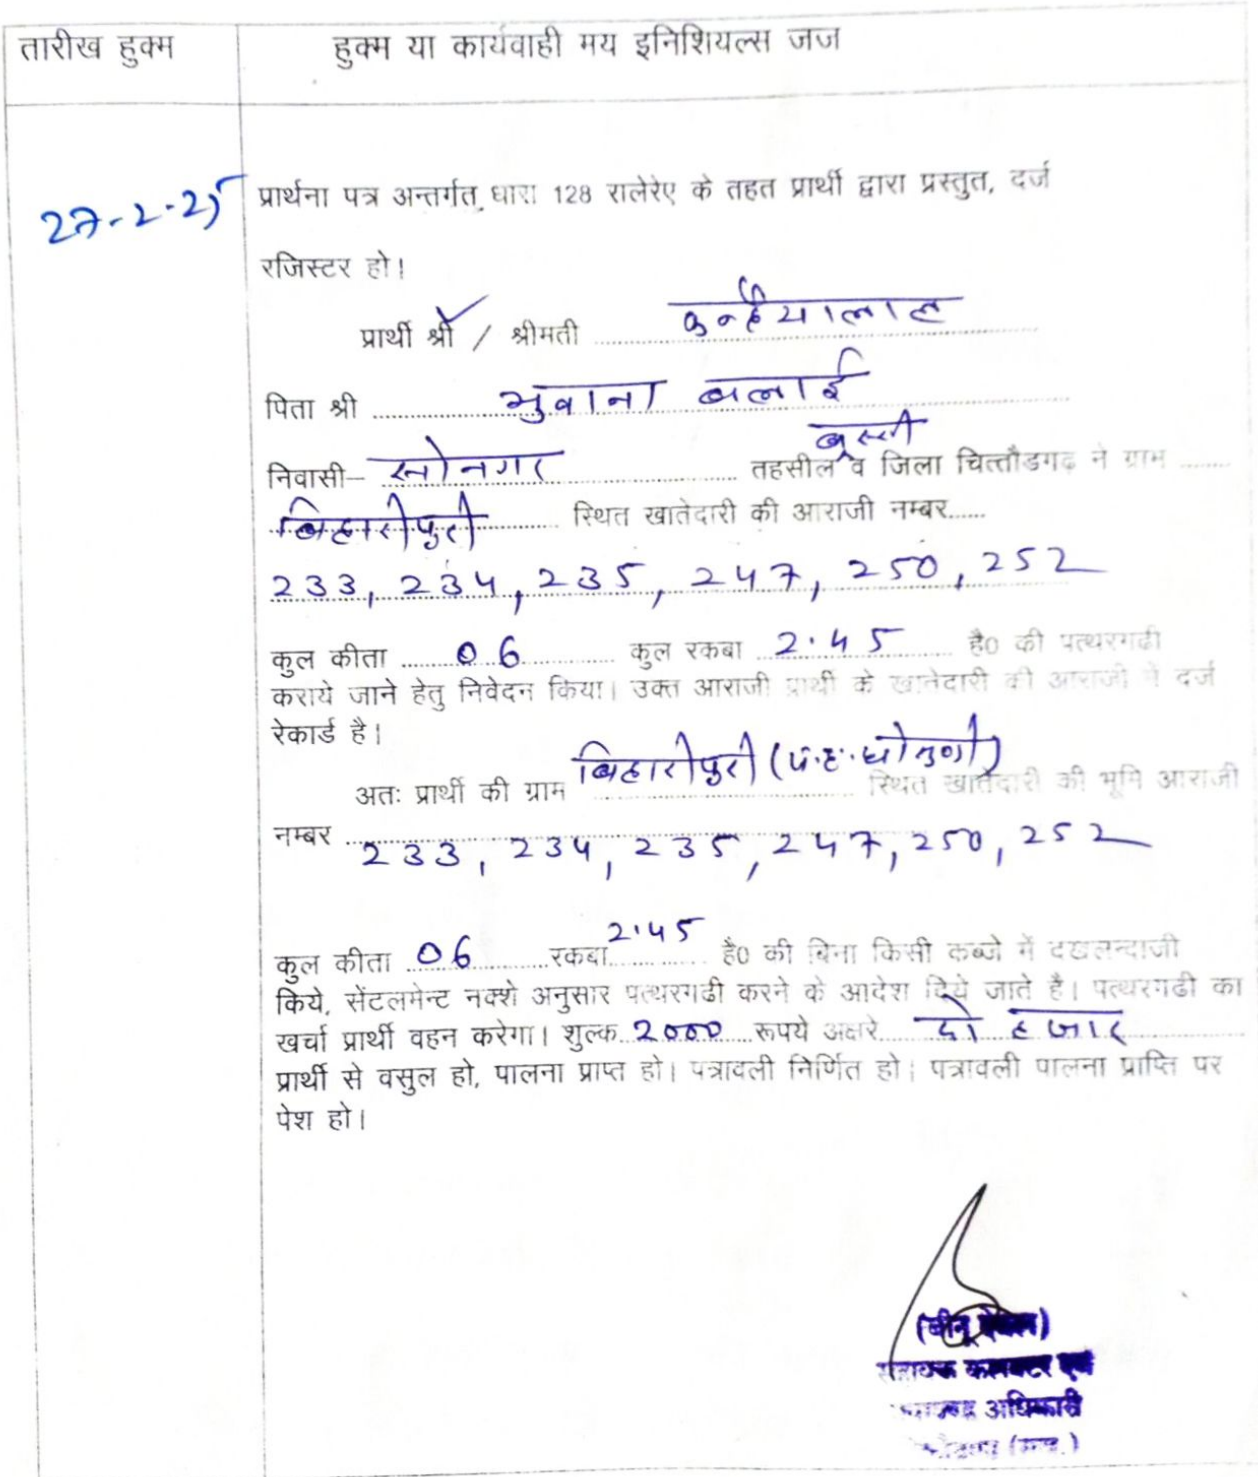 तारीख हुक्म
हुक्म या कार्यवाही मय इनिशियल्स जज
27-2-25
प्रार्थना पत्र अन्तर्गत धारा 128 रालेरेए के तहत प्रार्थी द्वारा प्रस्तुत, दर्ज
रजिस्टर हो।
कन्हैयालाल
प्रार्थी श्री ✓ / श्रीमती ........................
पिता श्री ........ भुवाना बलाई ........
बस्सी
निवासी– सोनगर ........ तहसील व जिला चित्तौडगढ ने ग्राम ........
बिहारीपुरा ........ स्थित खातेदारी की आराजी नम्बर......
233, 234, 235, 247, 250, 252
कुल कीता ........ 06 ........ कुल रकबा ..2.45........ है0 की पत्थरगढी
कराये जाने हेतु निवेदन किया। उक्त आराजी प्रार्थी के खातेदारी की आराजी में दर्ज
रेकार्ड है।
बिहारीपुरा (प.ह.
अतः प्रार्थी की ग्राम ........................ स्थित खातेदारी की भूमि आराजी
नम्बर ........................
233, 234, 235, 247, 250, 252
2.45
कुल कीता ..06........रकबा............ है0 की बिना किसी कब्जे में दखलन्दाजी
किये, सेंटलमेन्ट नक्शे अनुसार पत्थरगढी करने के आदेश दिये जाते है। पत्थरगढी का
खर्चा प्रार्थी वहन करेगा। शुल्क..2000....रूपये अक्षरे.... दो हजार ........
प्रार्थी से वसुल हो, पालना प्राप्त हो। पत्रावली निर्णित हो। पत्रावली पालना प्राप्ति पर
पेश हो।
(बीनू
सहायक कलक्टर एवं
अधिकारी
(राज.)